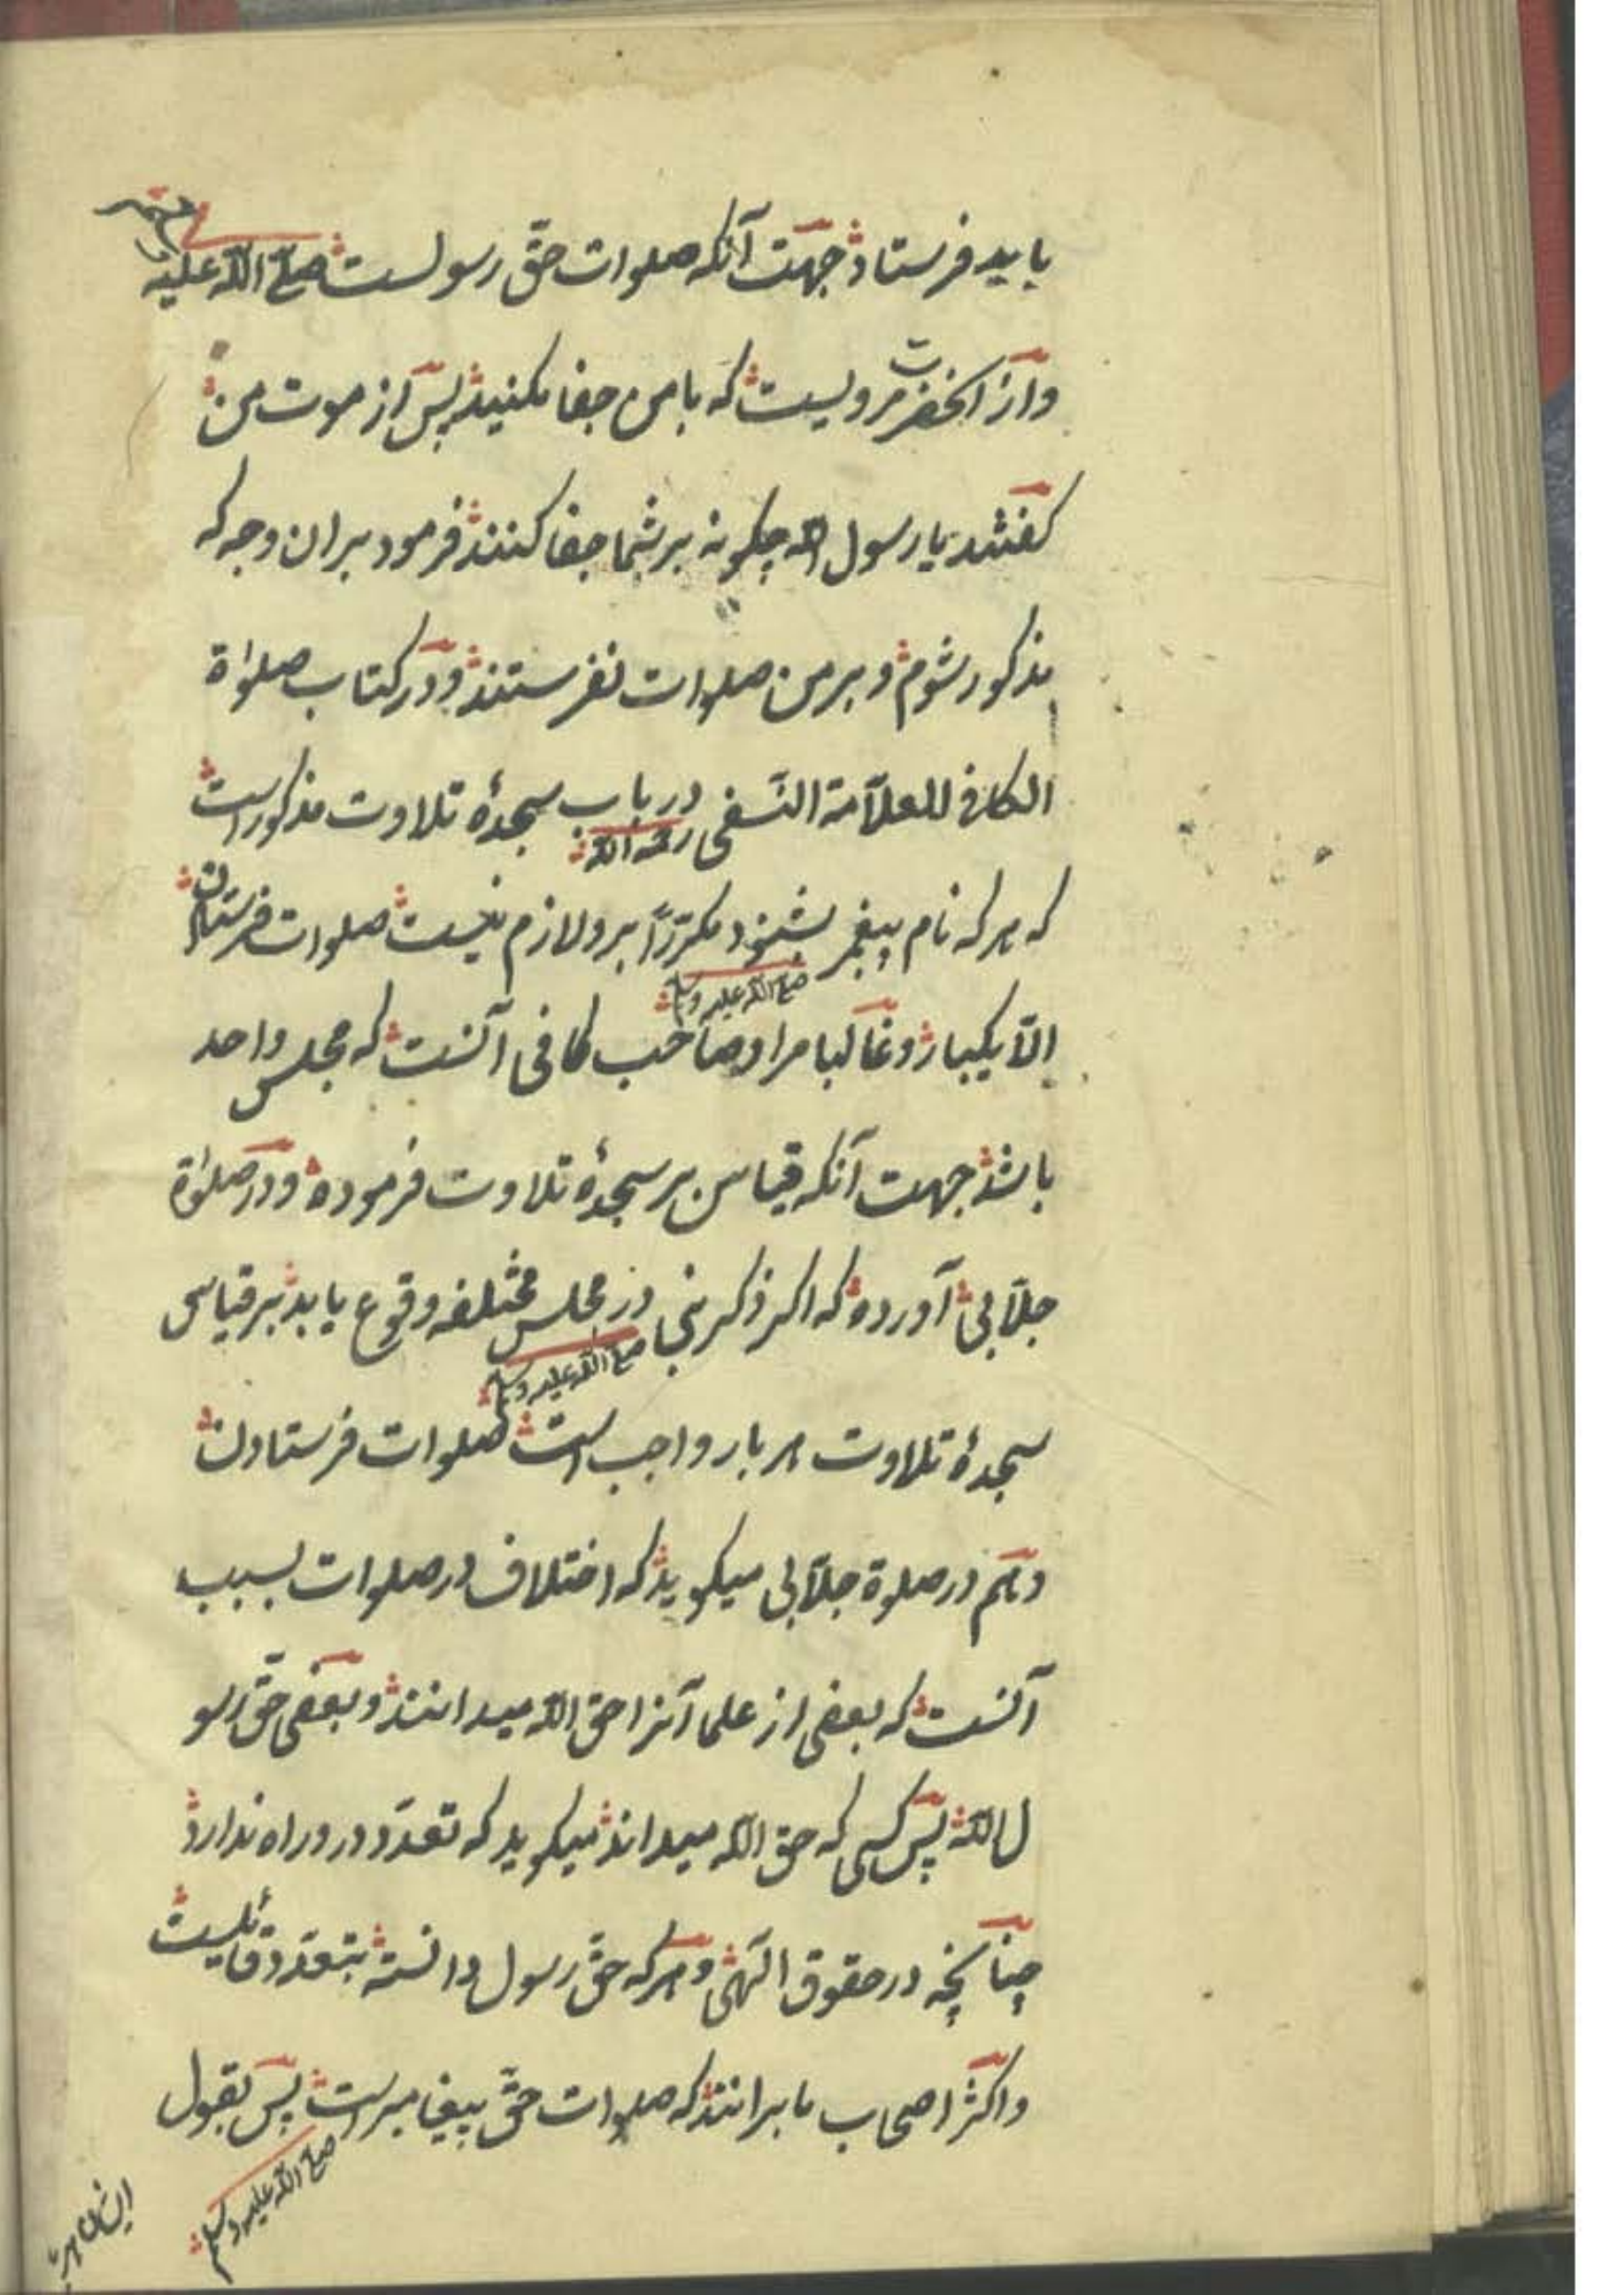 باید فرستاد جهت آنکه صلوات حقّ رسولست صلّی اللّه علیه
واز آنحضرت مرویست که با من جفا مکنید پس از موت من
کفتند یا رسول اللّه چکونه بر شما جفا کنند فرمود بران وجه که
مذکور شوم و بر من صلوات نفرستند و در کتاب صلوٰة
الکافی للعلاّمة النّسفی رحمه اللّه در باب سجدۀ تلاوت مذکور است
که هر که نام پیغمبر صلّی اللّه علیه وسلم بشنود مکرّراً برو لازم نیست صلوات فرستادن
الاّ یکبار و غالبا مراد صاحب کافی آنست که مجلس واحد
باشد جهت آنکه قیاس بر سجدۀ تلاوت فرموده و در صلوٰة
جلاّبی آورده که اکر ذکر نبی صلّی اللّه علیه وسلم در مجلس مختلفه وقوع یابد بر قیاس
سجدۀ تلاوت هر بار واجب است صلوات فرستادن
و هم در صلوة جلاّبی میکوید که اختلاف در صلوات بسبب
آنست که بعضی از علما آنرا حق اللّه میدانند و بعضی حقّ رسو
ل اللّه پس کسی که حق اللّه میداند میکوید که تعدّد درو راه ندارد
چنانچه در حقوق الٓهی و هر که حقّ رسول دانسته بتعدّد قائلیست
و اکثر اصحاب ما برانند که صلوات حقّ پیغامبر است صلّی اللّه علیه وسلم پس بقول